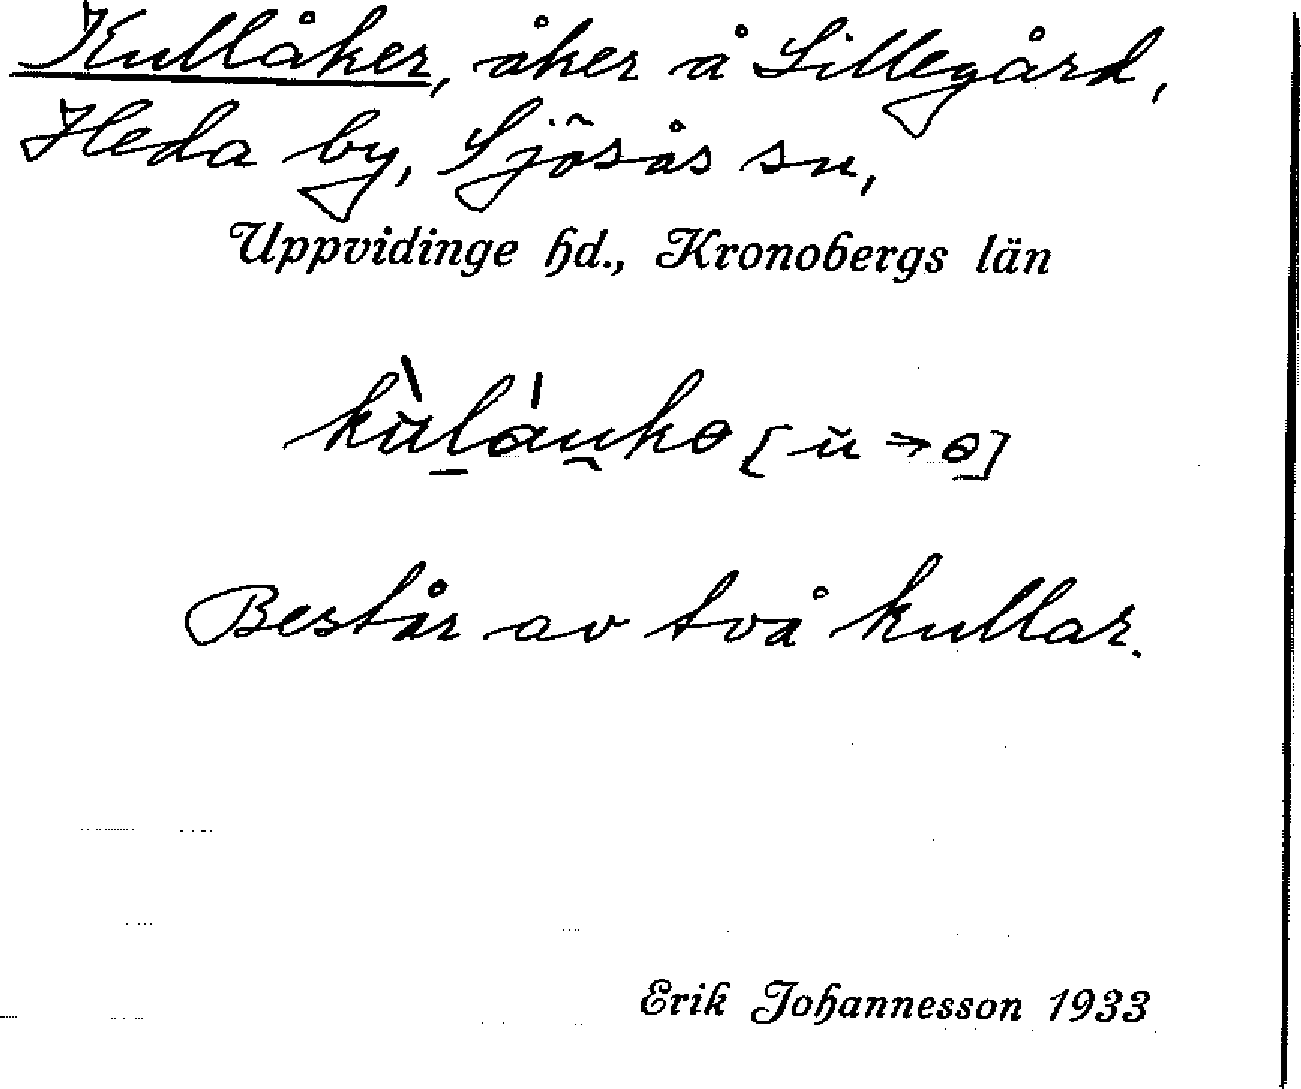 Kullåker, åker å Lillegård,
Heda by, Sjösås sn,
Uppvidinge hd., Kronobergs län
[ŭ → ɵ]
Består av två kullar.
Erik Johannesson 1933